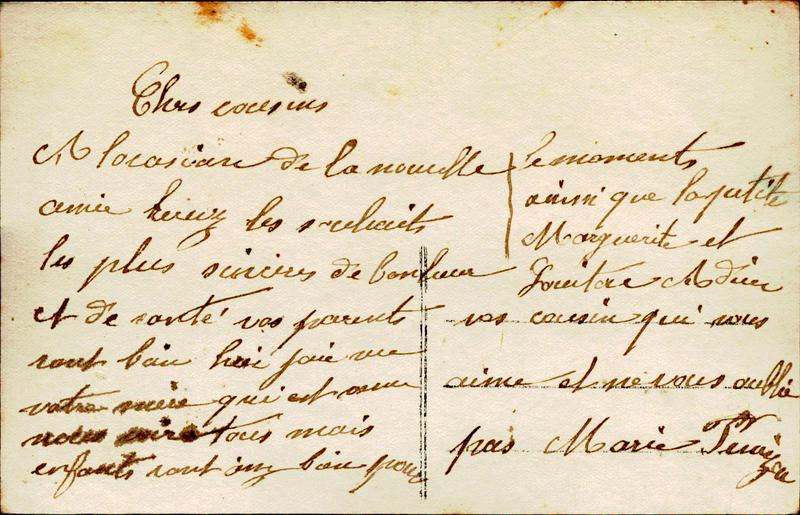 Chers cousins
A locasion de la nouvelle
anné les souhaits
les plus sincères de bonheur
et de santé vos parents
sont bien hier jaie vue
votre mère qui est venue
nous voire tous mais
enfants sont bien pour
le moments
ainsi que la petite
Marguerite et
Adieu
vos cousin qui vous
aime et ne vous oublie
pas Marie